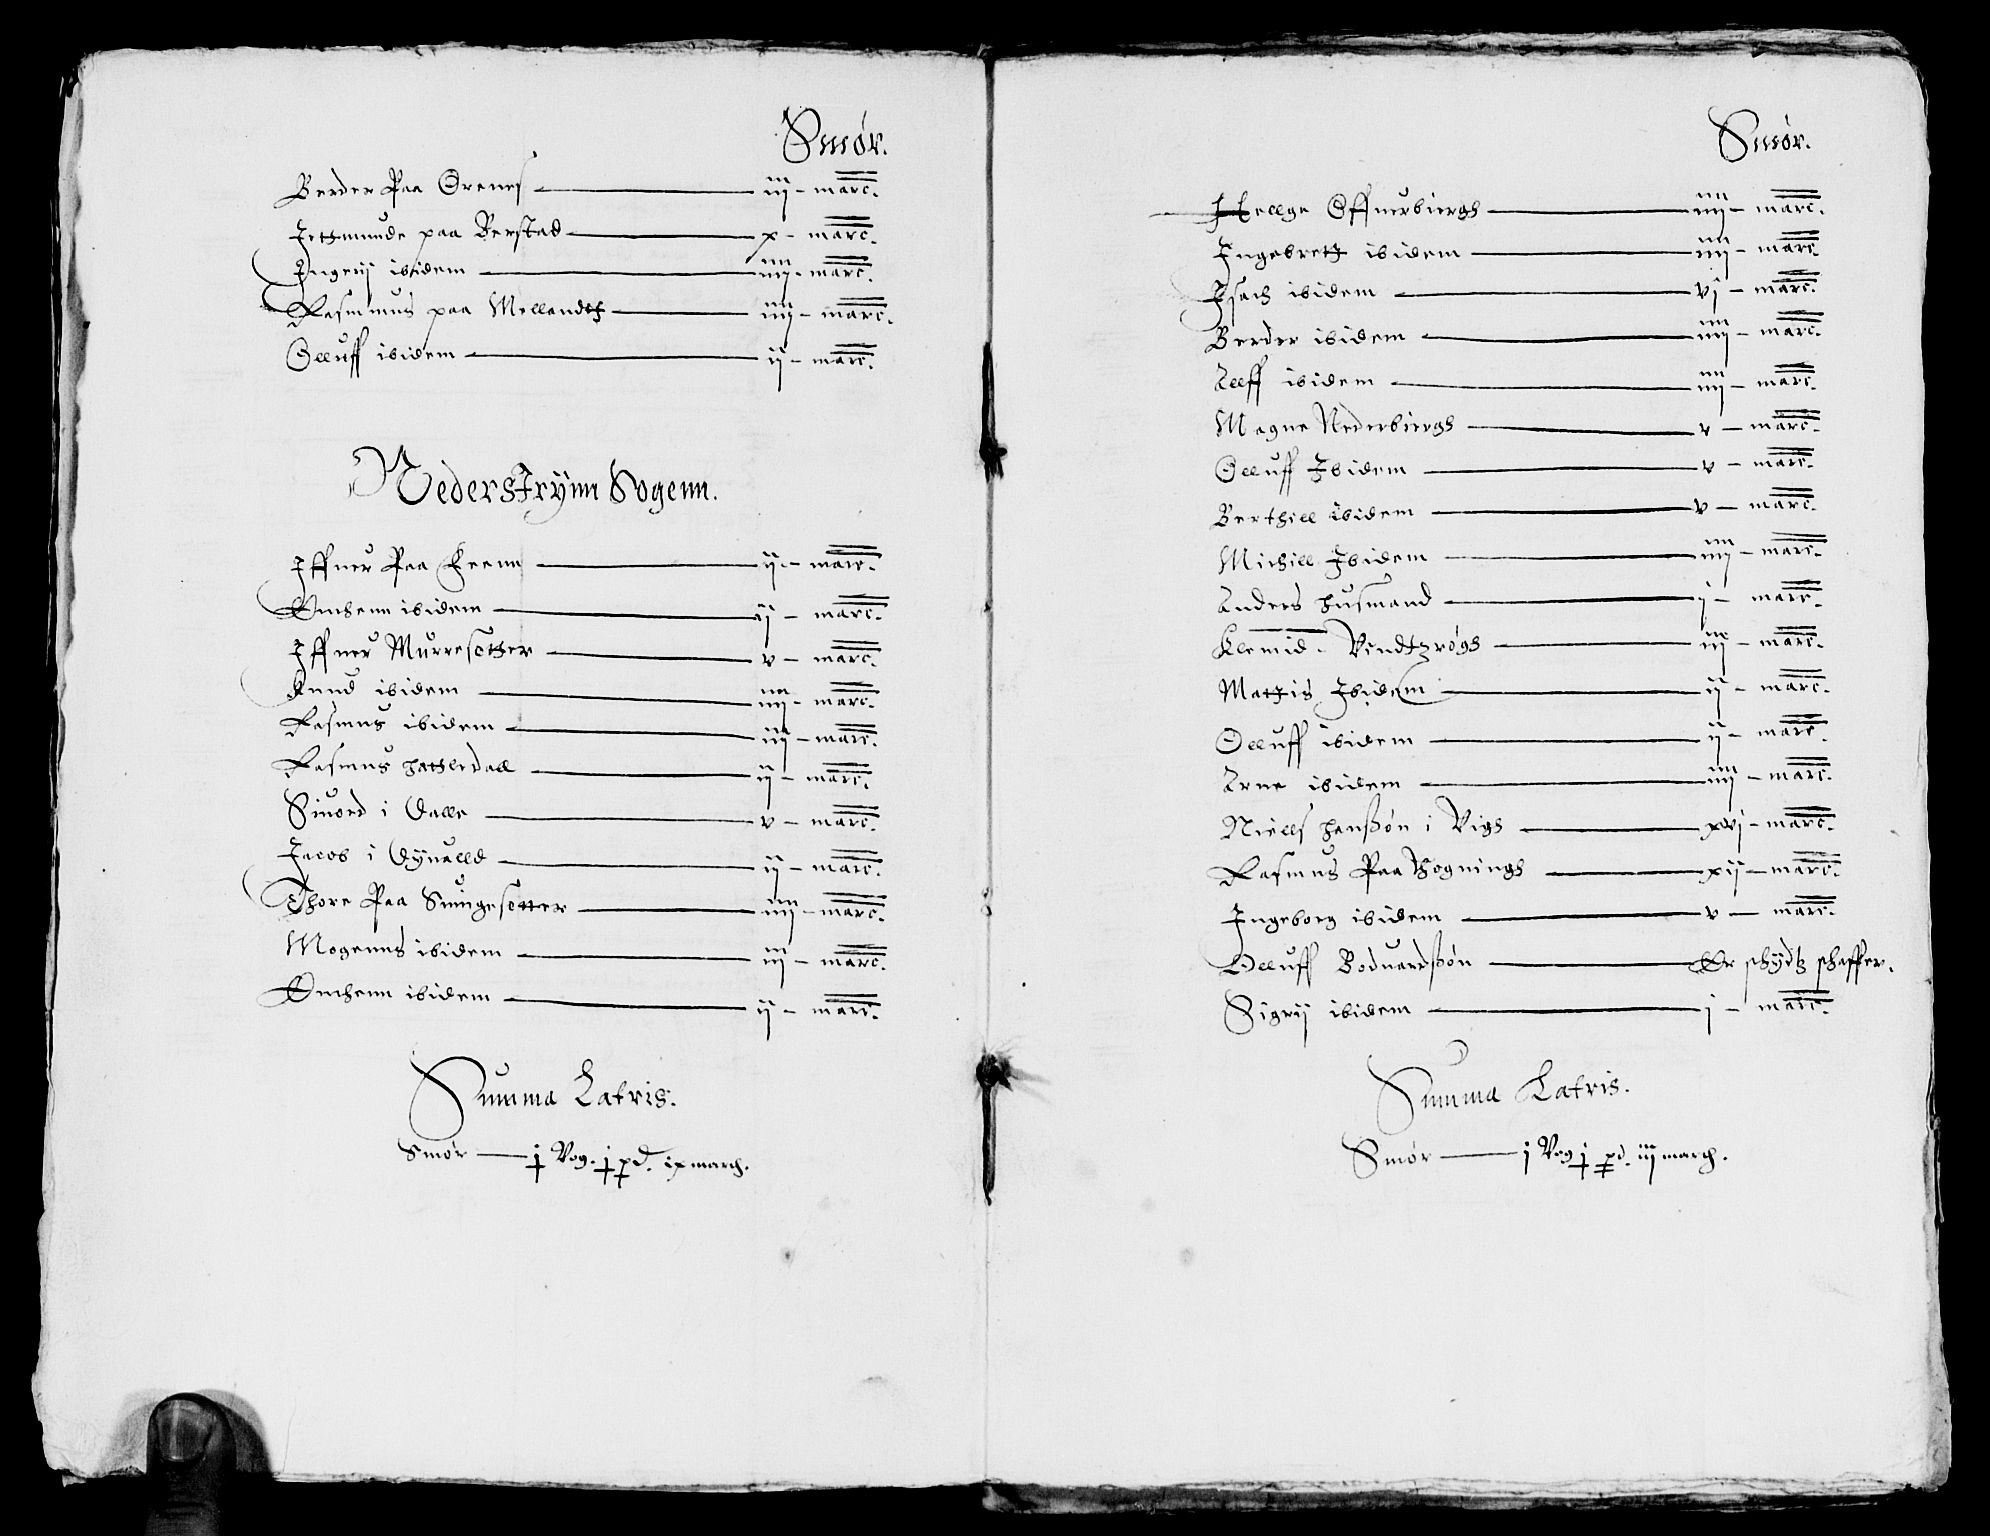 Smør.
Berder Paa Ørenes — iij — marc.
Jettmunde paa Berstad — x — marc.
Jngerij ibidem — iiij — marc.
Rasmus paa Mellandtt — iiij — marc.
Olluff ibidem — ij — marc.
Nederstrynn Sogenn.
Jffuer Paa — ij — marc.
Omhenn ibidem — ij — marc.
Jffuer Murresetther — v — marc.
Knud ibidem — iiij — marc.
Rasmus ibidem — iiij — marc.
Rasmus hatledall — ij — marc.
Siuord i Dalle — v — marc.
Jacob i — ij — marc.
Thore Paa Suingesetter — iiij — marc.
Mogenns ibidem — iij — marc.
Omhenn ibidem — ij — marc.
Summa Latris.
Smør — j Vog. j pd. ix march.
Smør.
Hellge Offuerbiergh — iiij — marc.
Jngebrett ibidem — iiij — marc.
Jsach ibidem — vj — marc.
Berder ibidem — iiij — marc.
Alff ibidem — iiij — marc.
Magne Nederbiergh — v — marc.
Olluff Jbidem — v — marc.
Berthill ibidem — v — marc.
Michill Jbidem — iiij — marc.
Anders husmand — j — marc.
Klemid. — iij — marc.
Mattis Jbidem — ij — marc.
Olluff ibidem — ij — marc.
Arne ibidem — iiij — marc.
Niells hanßøn i Vigh — xvj — marc.
Rasmus Paa Hogningh — xij — marc.
Jngeborg ibidem — v — marc.
Olluff Boduardßøn — Er schydtz schaffer.
Sigrij ibidem — j — marc.
Summa Latris.
Smør — j Vog j pd. iij march.